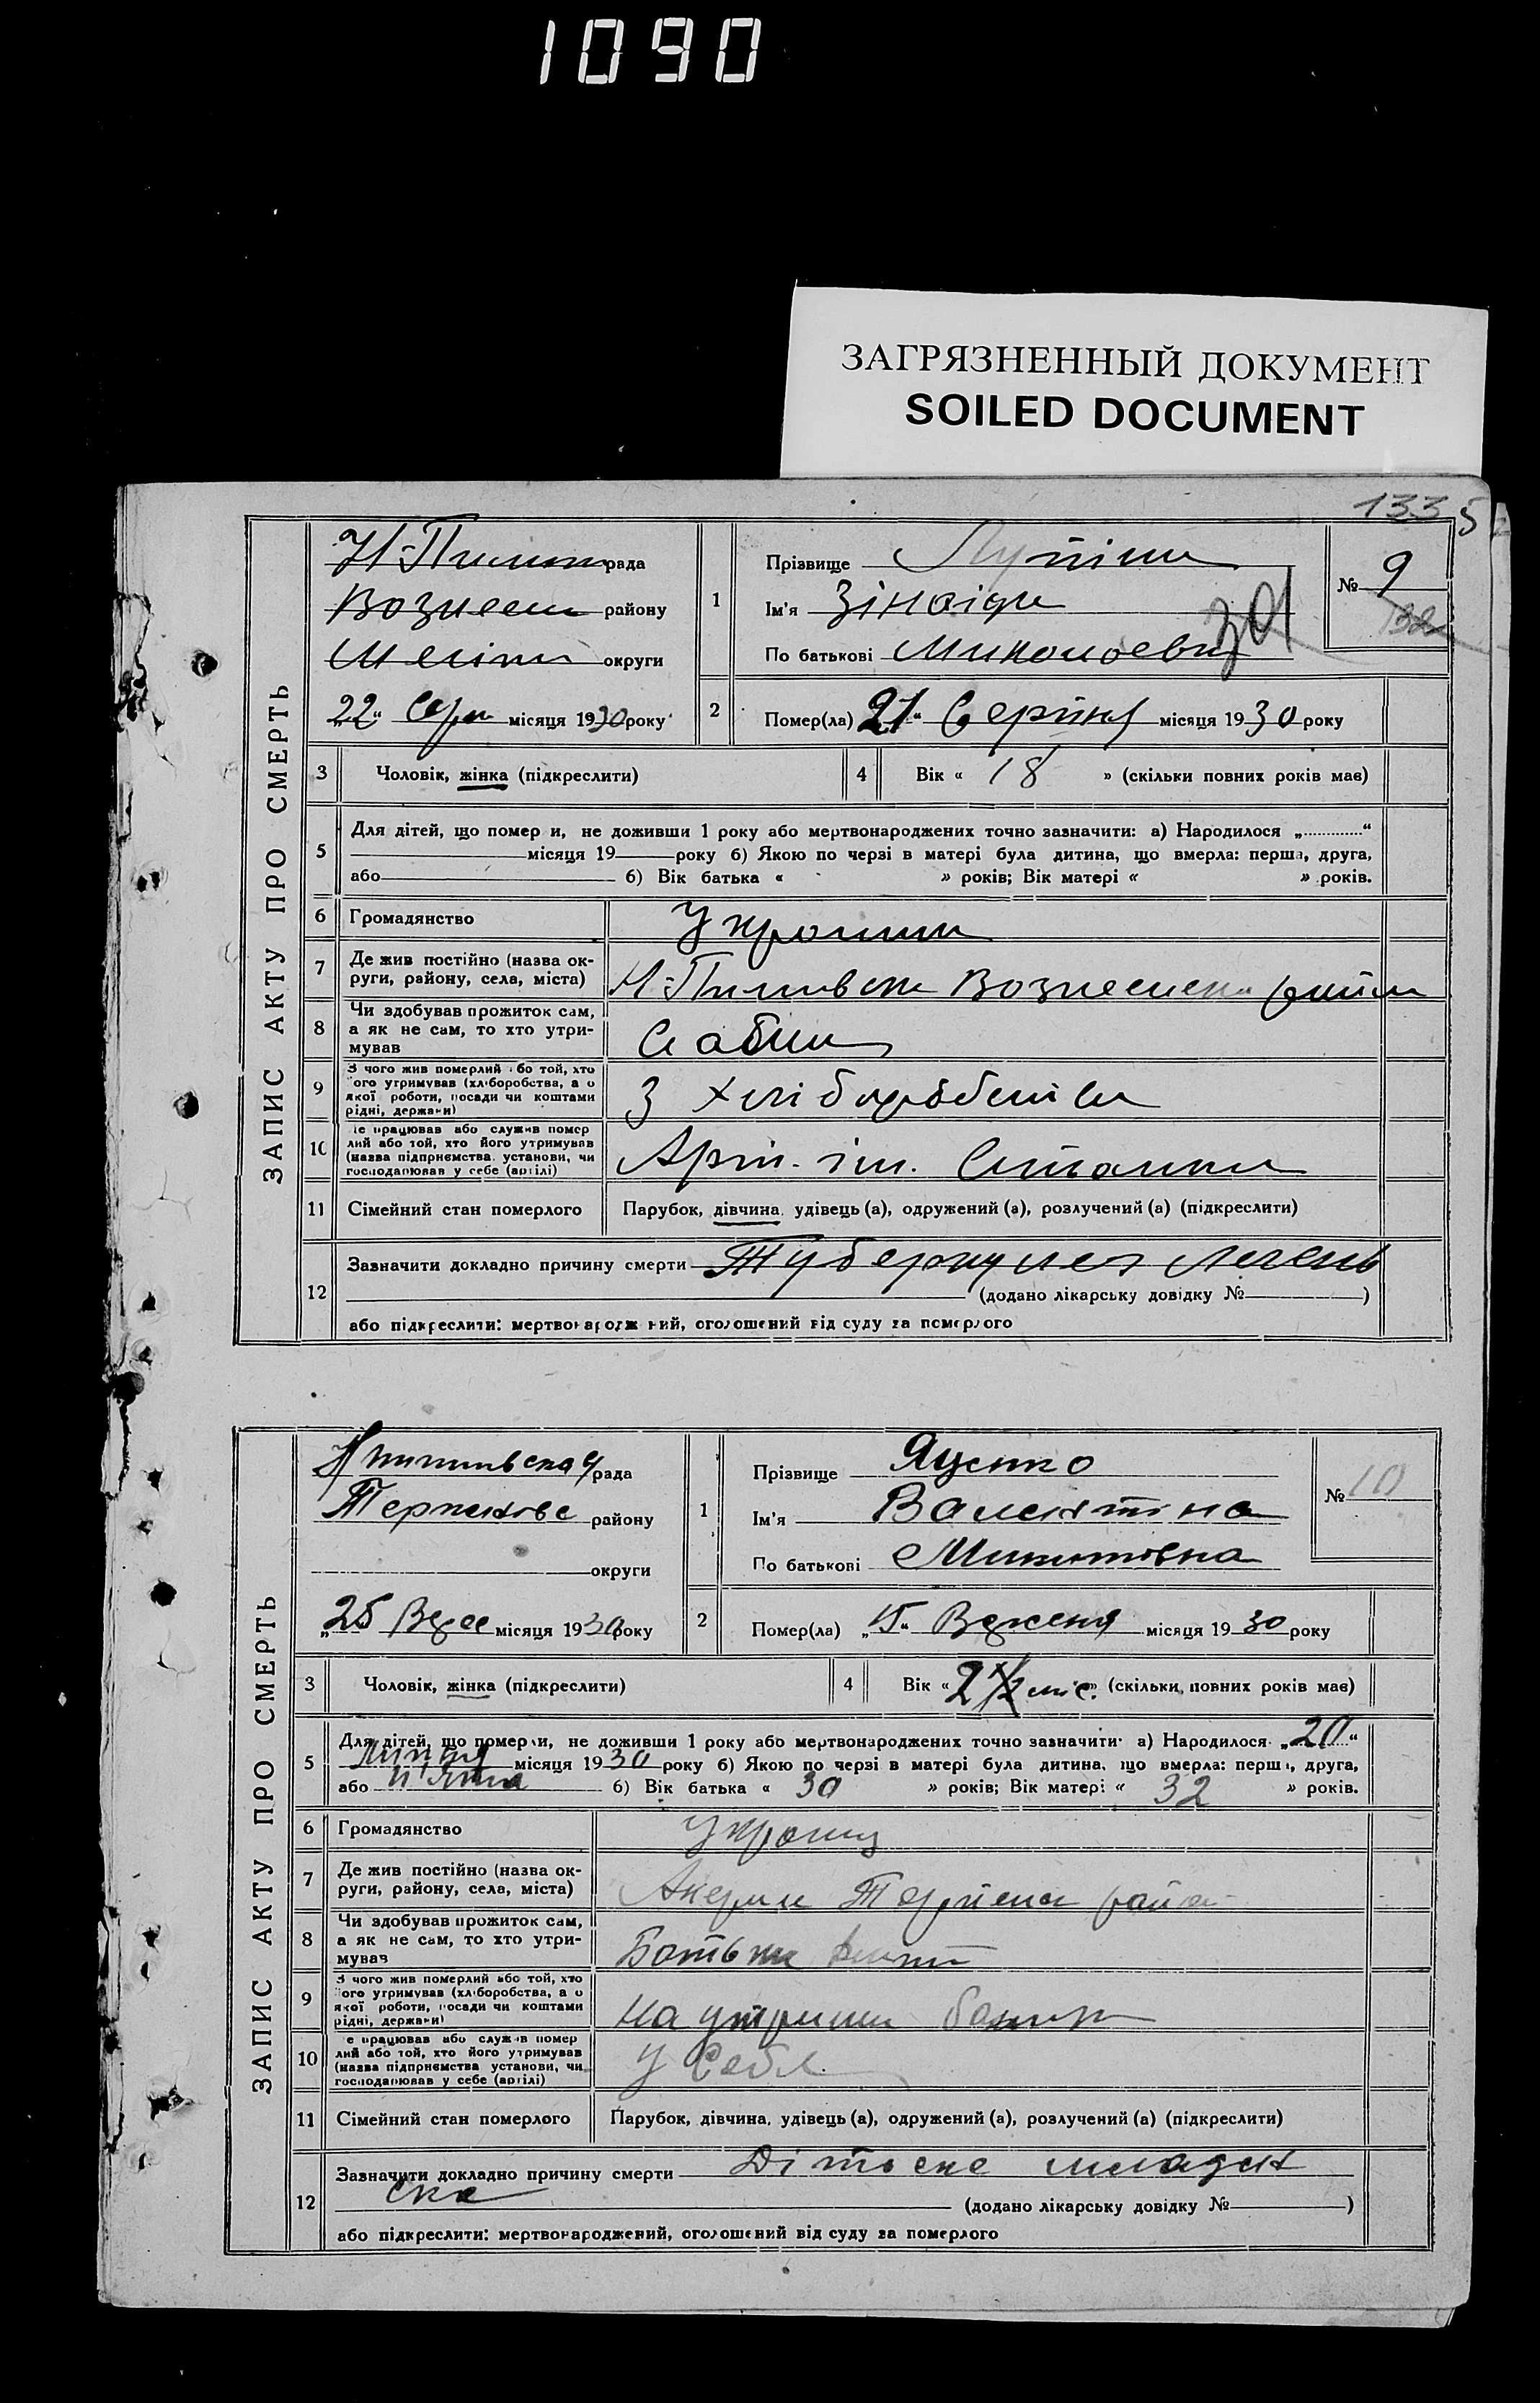 1090
ЗАГРЯЗНЕННЫЙ ДОКУМЕНТ
SOILED DOCUMENT
133 5
ЗАПИС АКТУ ПРО СМЕРТЬ
рада
району
округи
„22“ Серп місяця 1930 року
1
Прізвище
Ім'я Зінаіди
По батькові
301
№ 9
132
2
Помер(ла) 21“ Серпня місяця 1930 року
3
Чоловік, жінка (підкреслити)
4
Вік « 18 » (скільки повних років має)
5
Для дітей, що помер и, не доживши 1 року або мертвонароджених точно зазначити: а) Народилося „ “
місяця 19 року б) Якою по черзі в матері була дитина, що вмерла: перша, друга,
або б) Вік батька « » років; Вік матері « » років.
6
Громадянство
7
Де жив постійно (назва ок-
руги, району, села, міста)
8
Чи здобував прожиток сам,
а як не сам, то хто утри-
мував
9
З чого жив померлий або той, хто
його утримував (хліборобства, а о
якої роботи, посади чи коштами
рідні, держави)
З
10
е працював або служив помер
лий або той, хто його утримував
(назва підприємства установи, чи
господарював у себе (артілі)
Арт. ім.
11
Сімейний стан померлого
Парубок, дівчина, удівець (а), одружений (а), розлучений (а) (підкреслити)
12
Зазначити докладно причину смерти Туберкулез легень
(додано лікарську довідку № )
або підкреслити: мертвонароджений, оголошений від суду за померлого
ЗАПИС АКТУ ПРО СМЕРТЬ
рада
району
округи
„25 Вере місяця 1930 року
1
Прізвище Яценко
Ім'я Валентіна
По батькові Микитовна
№ 10
2
Помер(ла) „15“ місяця 1930 року
3
Чоловік, жінка (підкреслити)
4
Вік « 2 1/2 міс. » (скільки повних років має)
5
Для дітей, що померли, не доживши 1 року або мертвонароджених точно зазначити: а) Народилося „20“
Липня місяця 1930 року б) Якою по черзі в матері була дитина, що вмерла: перша, друга,
або п'ята б) Вік батька « 30 » років; Вік матері « 32 » років.
6
Громадянство
7
Де жив постійно (назва ок-
руги, району, села, міста)
8
Чи здобував прожиток сам,
а як не сам, то хто утри-
мував
Батьки
9
З чого жив померлий або той, хто
його утримував (хліборобства, а о
якої роботи, посади чи коштами
рідні, держави)
На
10
е працював або служив помер
лий або той, хто його утримував
(назва підприємства установи, чи
господарював у себе (артілі)
У Себе
11
Сімейний стан померлого
Парубок, дівчина, удівець (а), одружений (а), розлучений (а) (підкреслити)
12
Зазначити докладно причину смерти Дітьске младен
ска
(додано лікарську довідку № )
або підкреслити: мертвонароджений, оголошений від суду за померлого